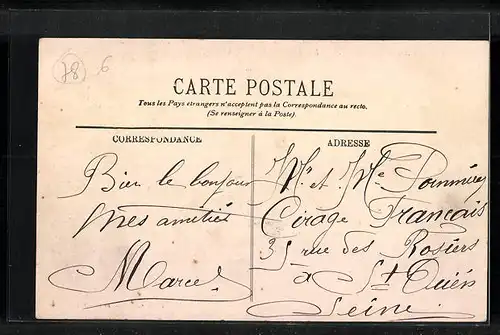 78
6
CARTE POSTALE
Tous les Pays étrangers n'acceptent pas la Correspondance au recto.
(Se renseigner à la Poste).
CORRESPONDANCE
Bien le bonjour
Mes amitiés
Marcel
ADRESSE
Mr et Me Pommiéry
Cirage Français
35 rue des Rosiers
a St Ouen
Seine.